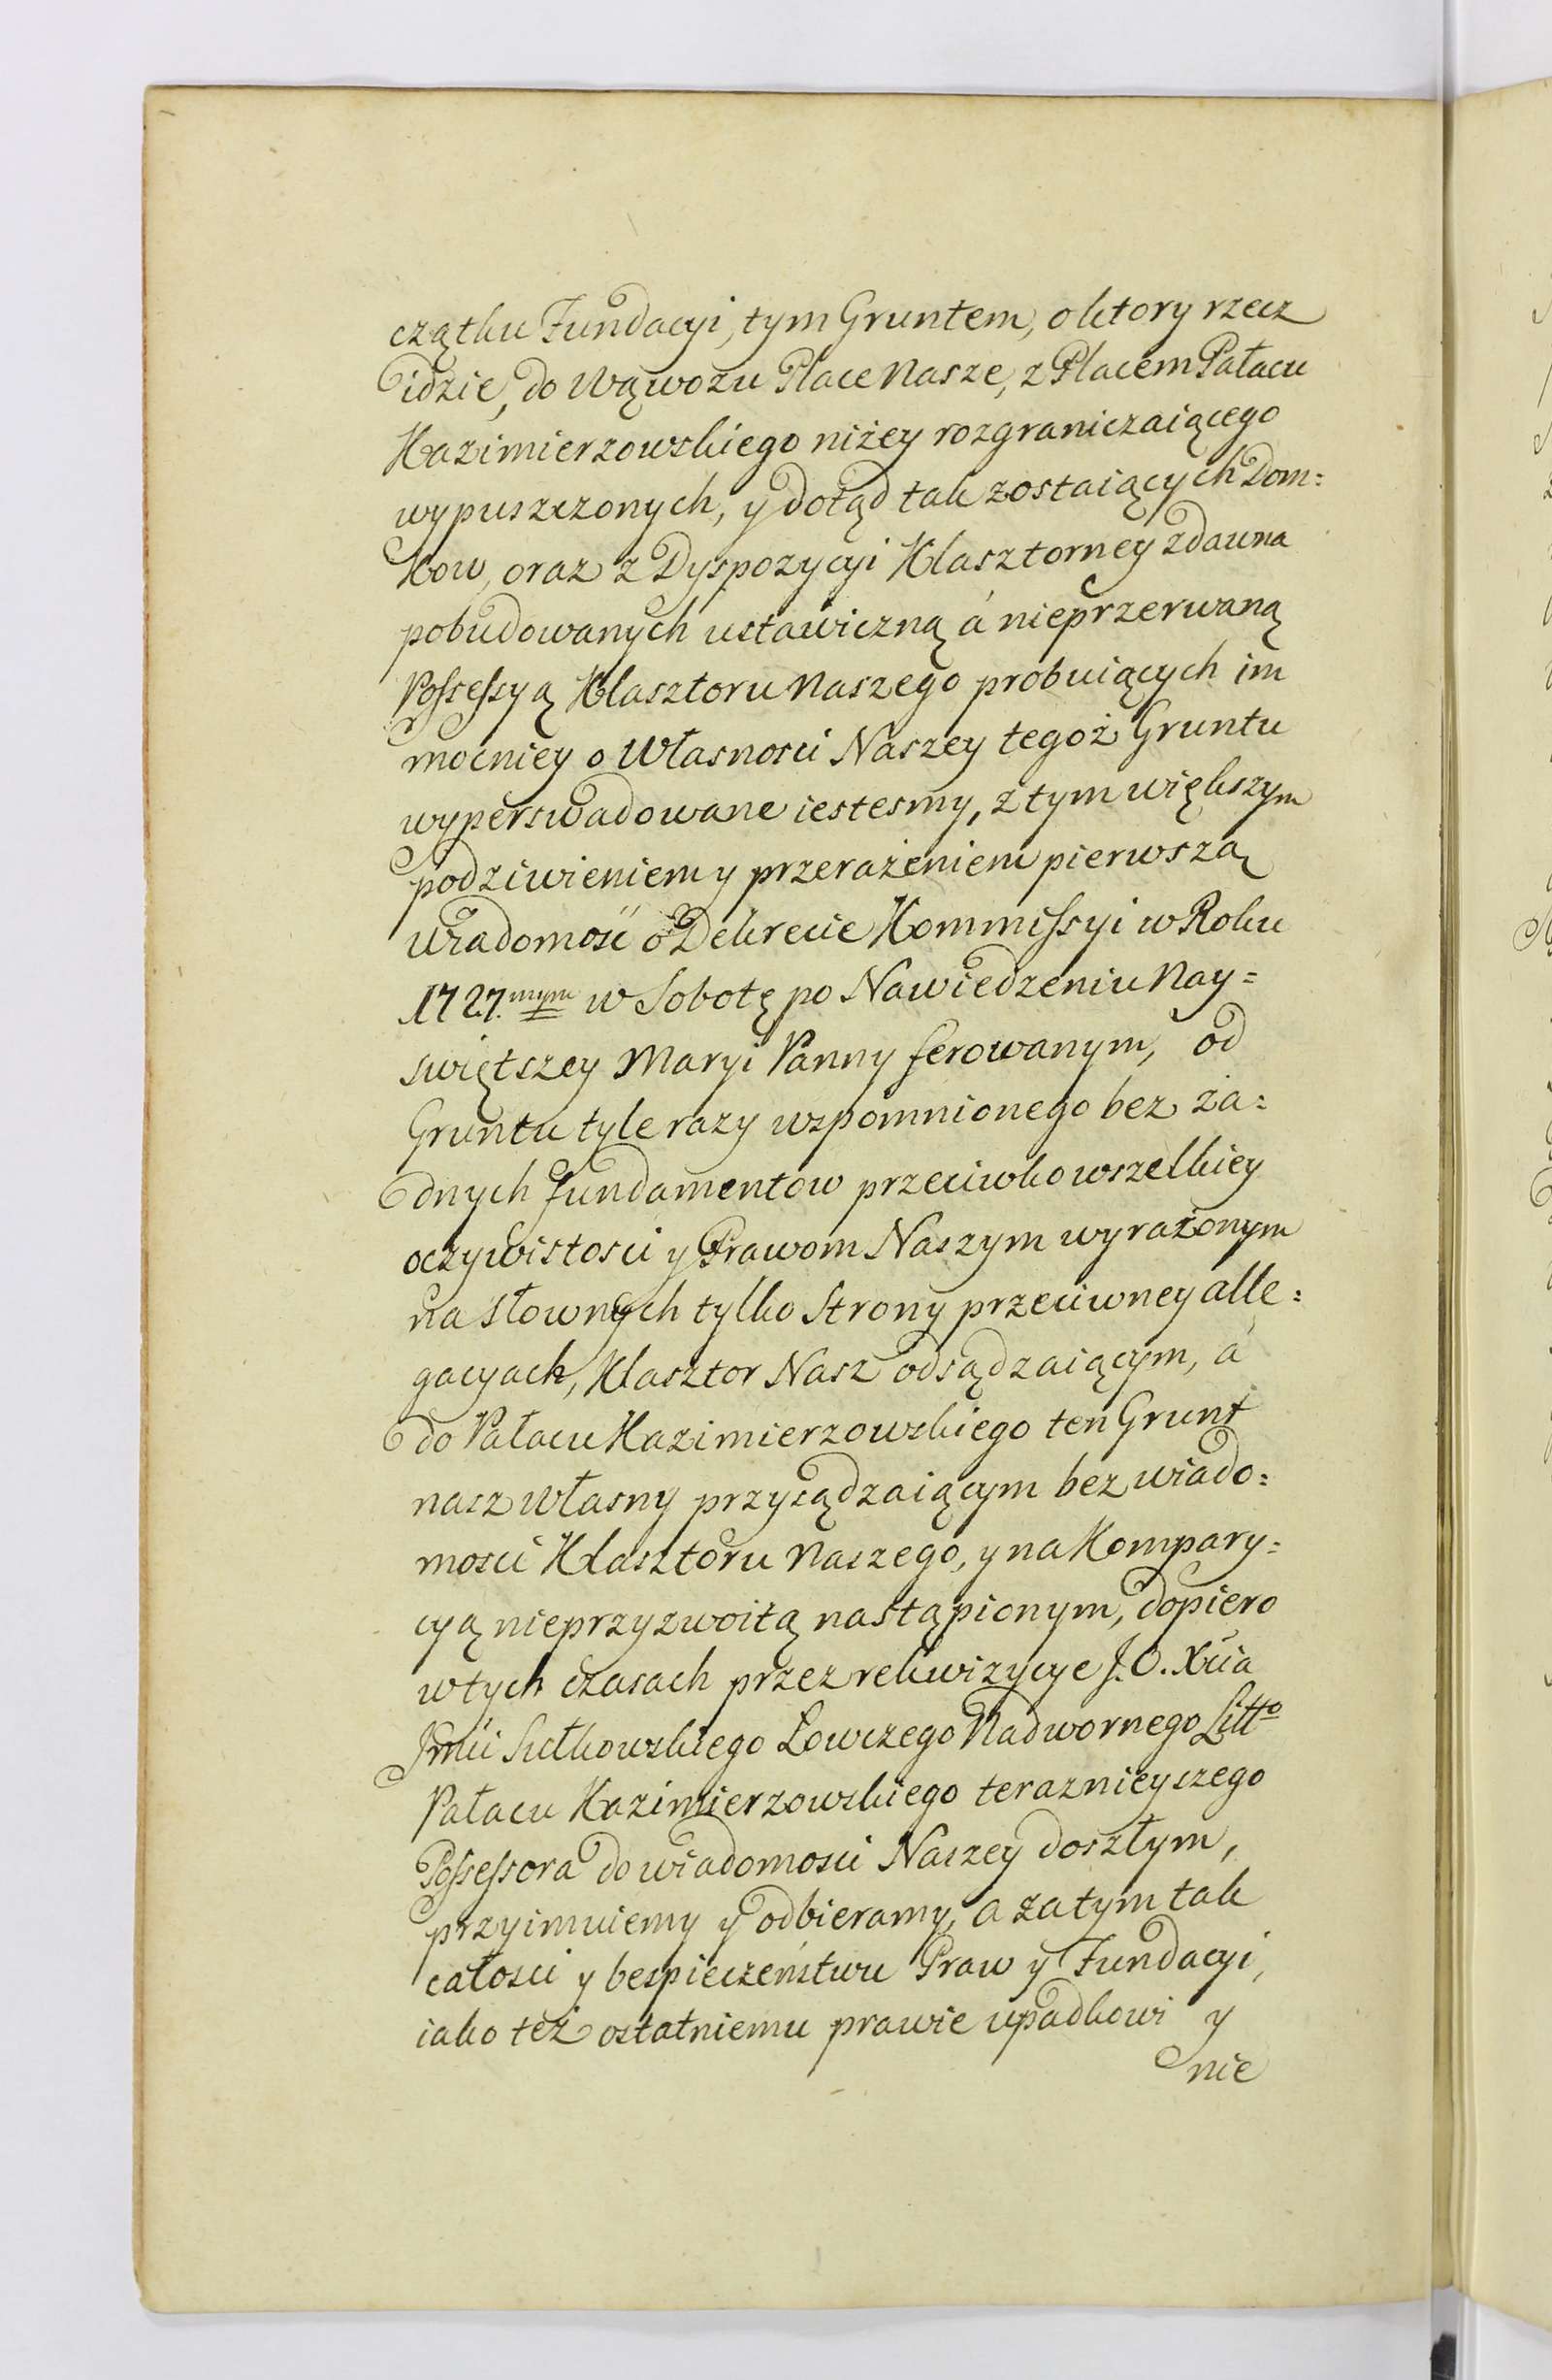 cząthu Fundacyi, tym Gruntem, o ktory rzecz
idzie, do Wąwozu Place Nasze, z Placem Pałacu
Kazimierzowskiego niżey rozgraniczaiącego
wypuszczonych, y dotąd tak zostaiących Dom=
kow, oraz z Dyspozycyi Klasztorney zdawna
pobudowanych ustawiczną á nieprzerwaną
Possessyą Klasztoru Naszego probuiących im
mocniey o Własnosci Naszey tegoż Gruntu
wyperswadowane iestesmy, z tym większym
podziwieniem y przerażeniem pierwszą
wiadomość o Dekrecie Kommissyi w Roku
1727.mym w Sobotę po Nawiedzeniu Nay=
swiętszey Maryi Panny ferowanym, od
Gruntu tyle razy wspomnionego bez ża=
dnych fundamentow przeciwko wszelkiey
oczywistosci y Prawom Naszym wyrażonym
na słownych tylko Strony przeciwney alle=
gacyach, Klasztor Nasz odsądzaiącym, á
do Pałacu Kazimierzowskiego ten Grunt
nasz własny przysądzaiącym bez wiado=
mosci Klasztoru Naszego, y na Kompary=
cyą nieprzyzwoitą nastąpionym, dopiero
w tych czasach przez rekwizycye J.O. Xcia
Jmci Sułkowskiego Łowczego Nadwornego Litto
Pałacu Kazimierzowskiego teraznieyszego
Possessora do wiadomosci Naszey doszłym,
przyimuiemy y odbieramy, a zatym tak
całosci y bespieczeństwu Praw y Fundacyi,
iako też ostatniemu prawie upadkowi y
nie